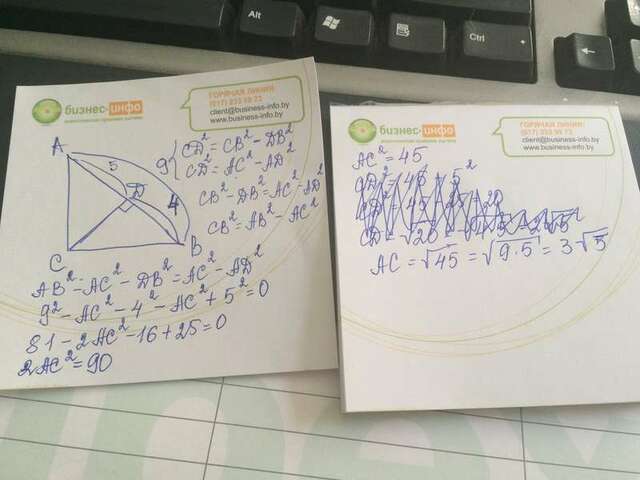 Alt
Ctrl
бизнес-инфо
ГОРЯЧАЯ ЛИНИЯ:
client@business-info.by
www.business-info.by
A
5
D
4
9
C
B
CD² = CB² - DB²
CD² = AC² - AD²
CB² - DB² = AC² - AD²
CB² = AB² - AC²
AB² - AC² - DB² = AC² - AD²
9² - AC² - 4² - AC² + 5² = 0
81 - 2AC² - 16 + 25 = 0
2AC² = 90
бизнес-инфо
ГОРЯЧАЯ ЛИНИЯ:
client@business-info.by
www.business-info.by
AC² = 45
AC = √45 = √9·5 = 3√5